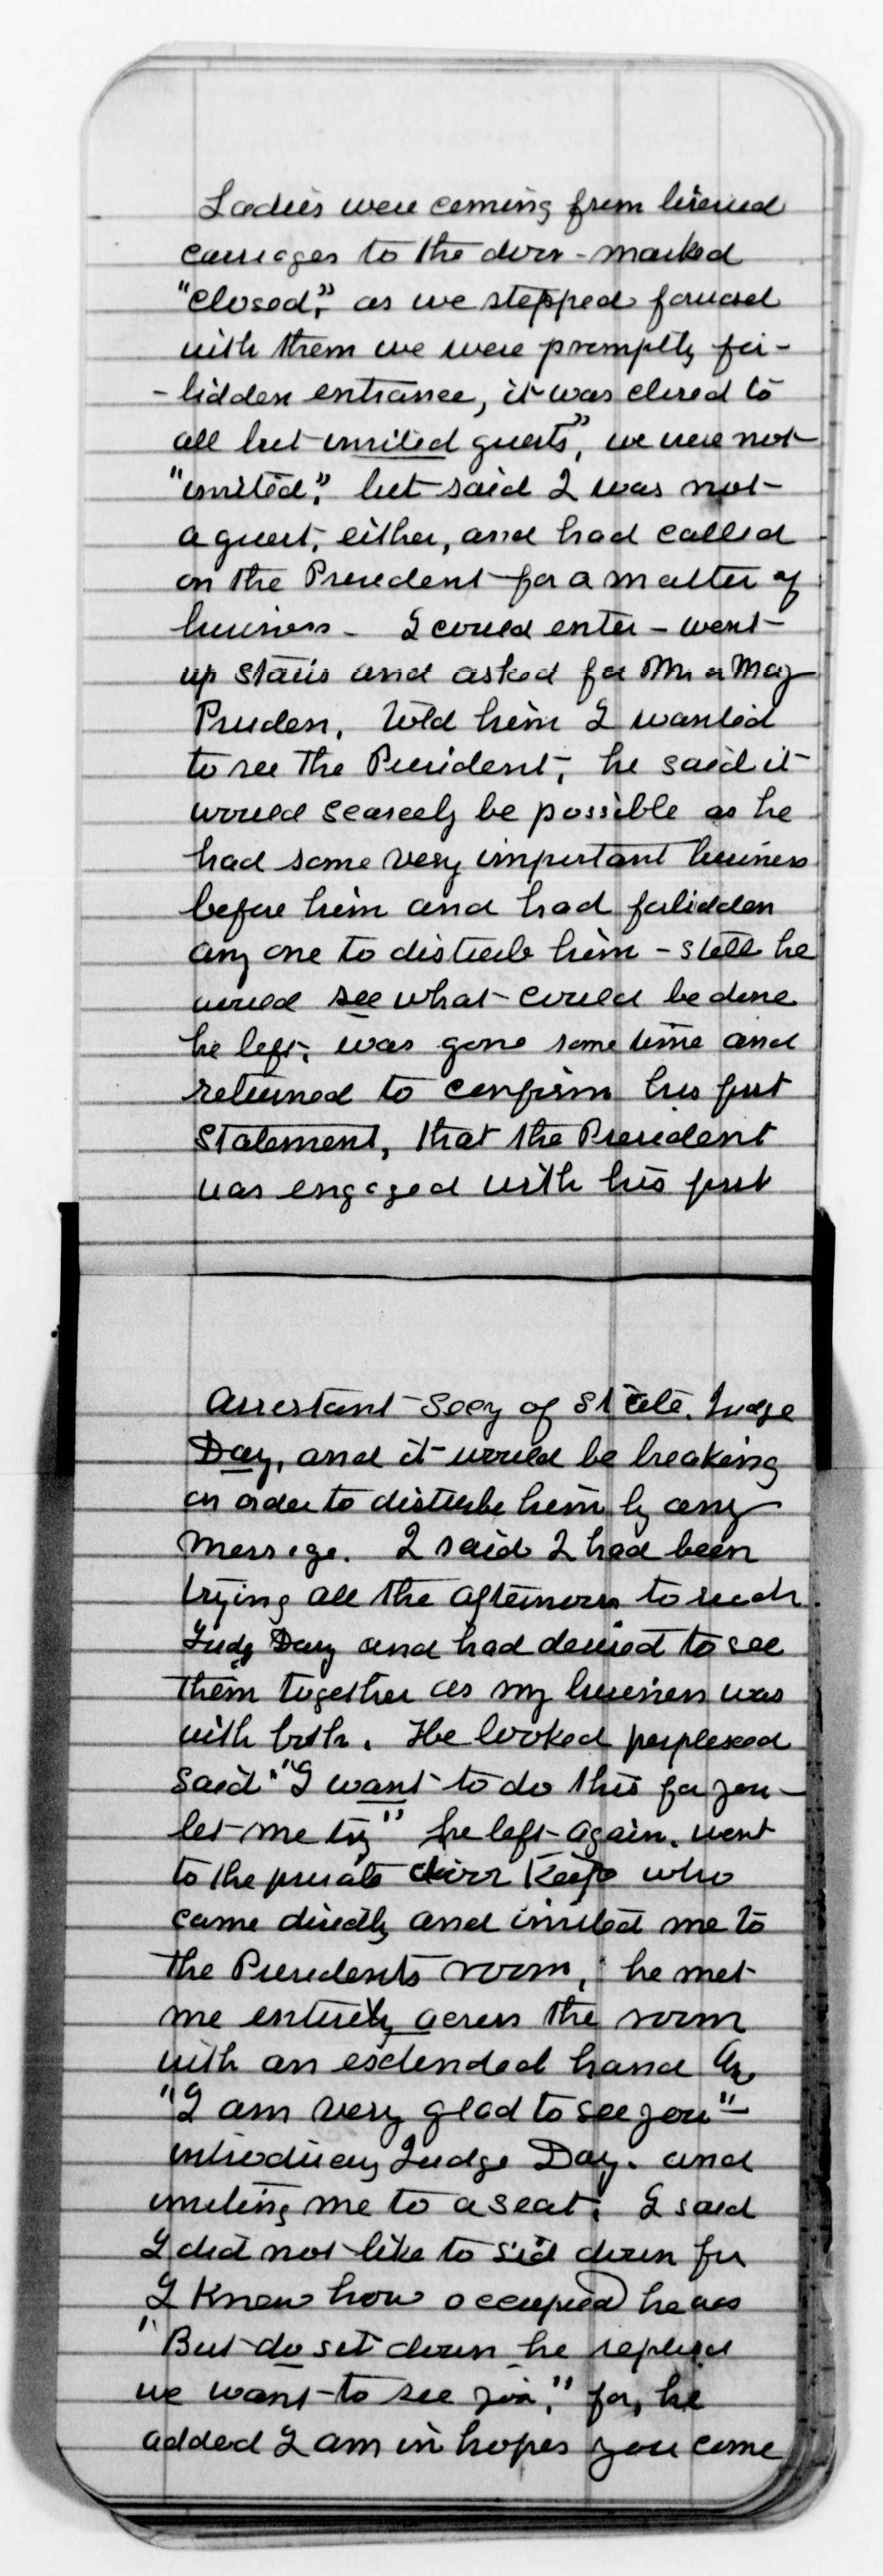 Ladies were coming from liveried
carriages to the door - marked
"closed", as we stepped forward
with them we were promptly for-
-bidden entrance, it was closed to
all but invited guests", we were not
"invited", but said I was not
a guest, either, and had called
on the President for a matter of
business - I could enter - went
up stairs and asked for Mr or Maj
Pruden, told him I wanted
to see the President, he said it
would scarcely be possible as he
had some very important business
before him and had forbidden
any one to disturb him - still he
would see what could be done
he left, was gone some time and
returned to confirm his first
statement, that the President
was engaged with his first
Assistant Secy of State. Judge
Day, and it would be breaking
an order to disturb him by any
message. I said I had been
trying all the afternoon to reach
Judg Day and had desired to see
them together as my business was
with both. He looked perplexed
said "I want to do this for you -
let me try" he left again, went
to the private door Keep who
came directly and invited me to
the Presidents room, he met
me entirely across the room
with an extended hand
"I am very glad to see you" -
introducing Judge Day. and
inviting me to a seat. I said
I did not like to sit down for
I Knew how occupied he was
"But do sit down he replied
we want to see you," for, he
added I am in hopes you come